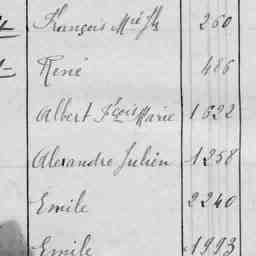 François Mie fs 260
René 486
Albert Fçois Marie 1622
Alexandre Julien 1258
Emile 2240
Emile 1993